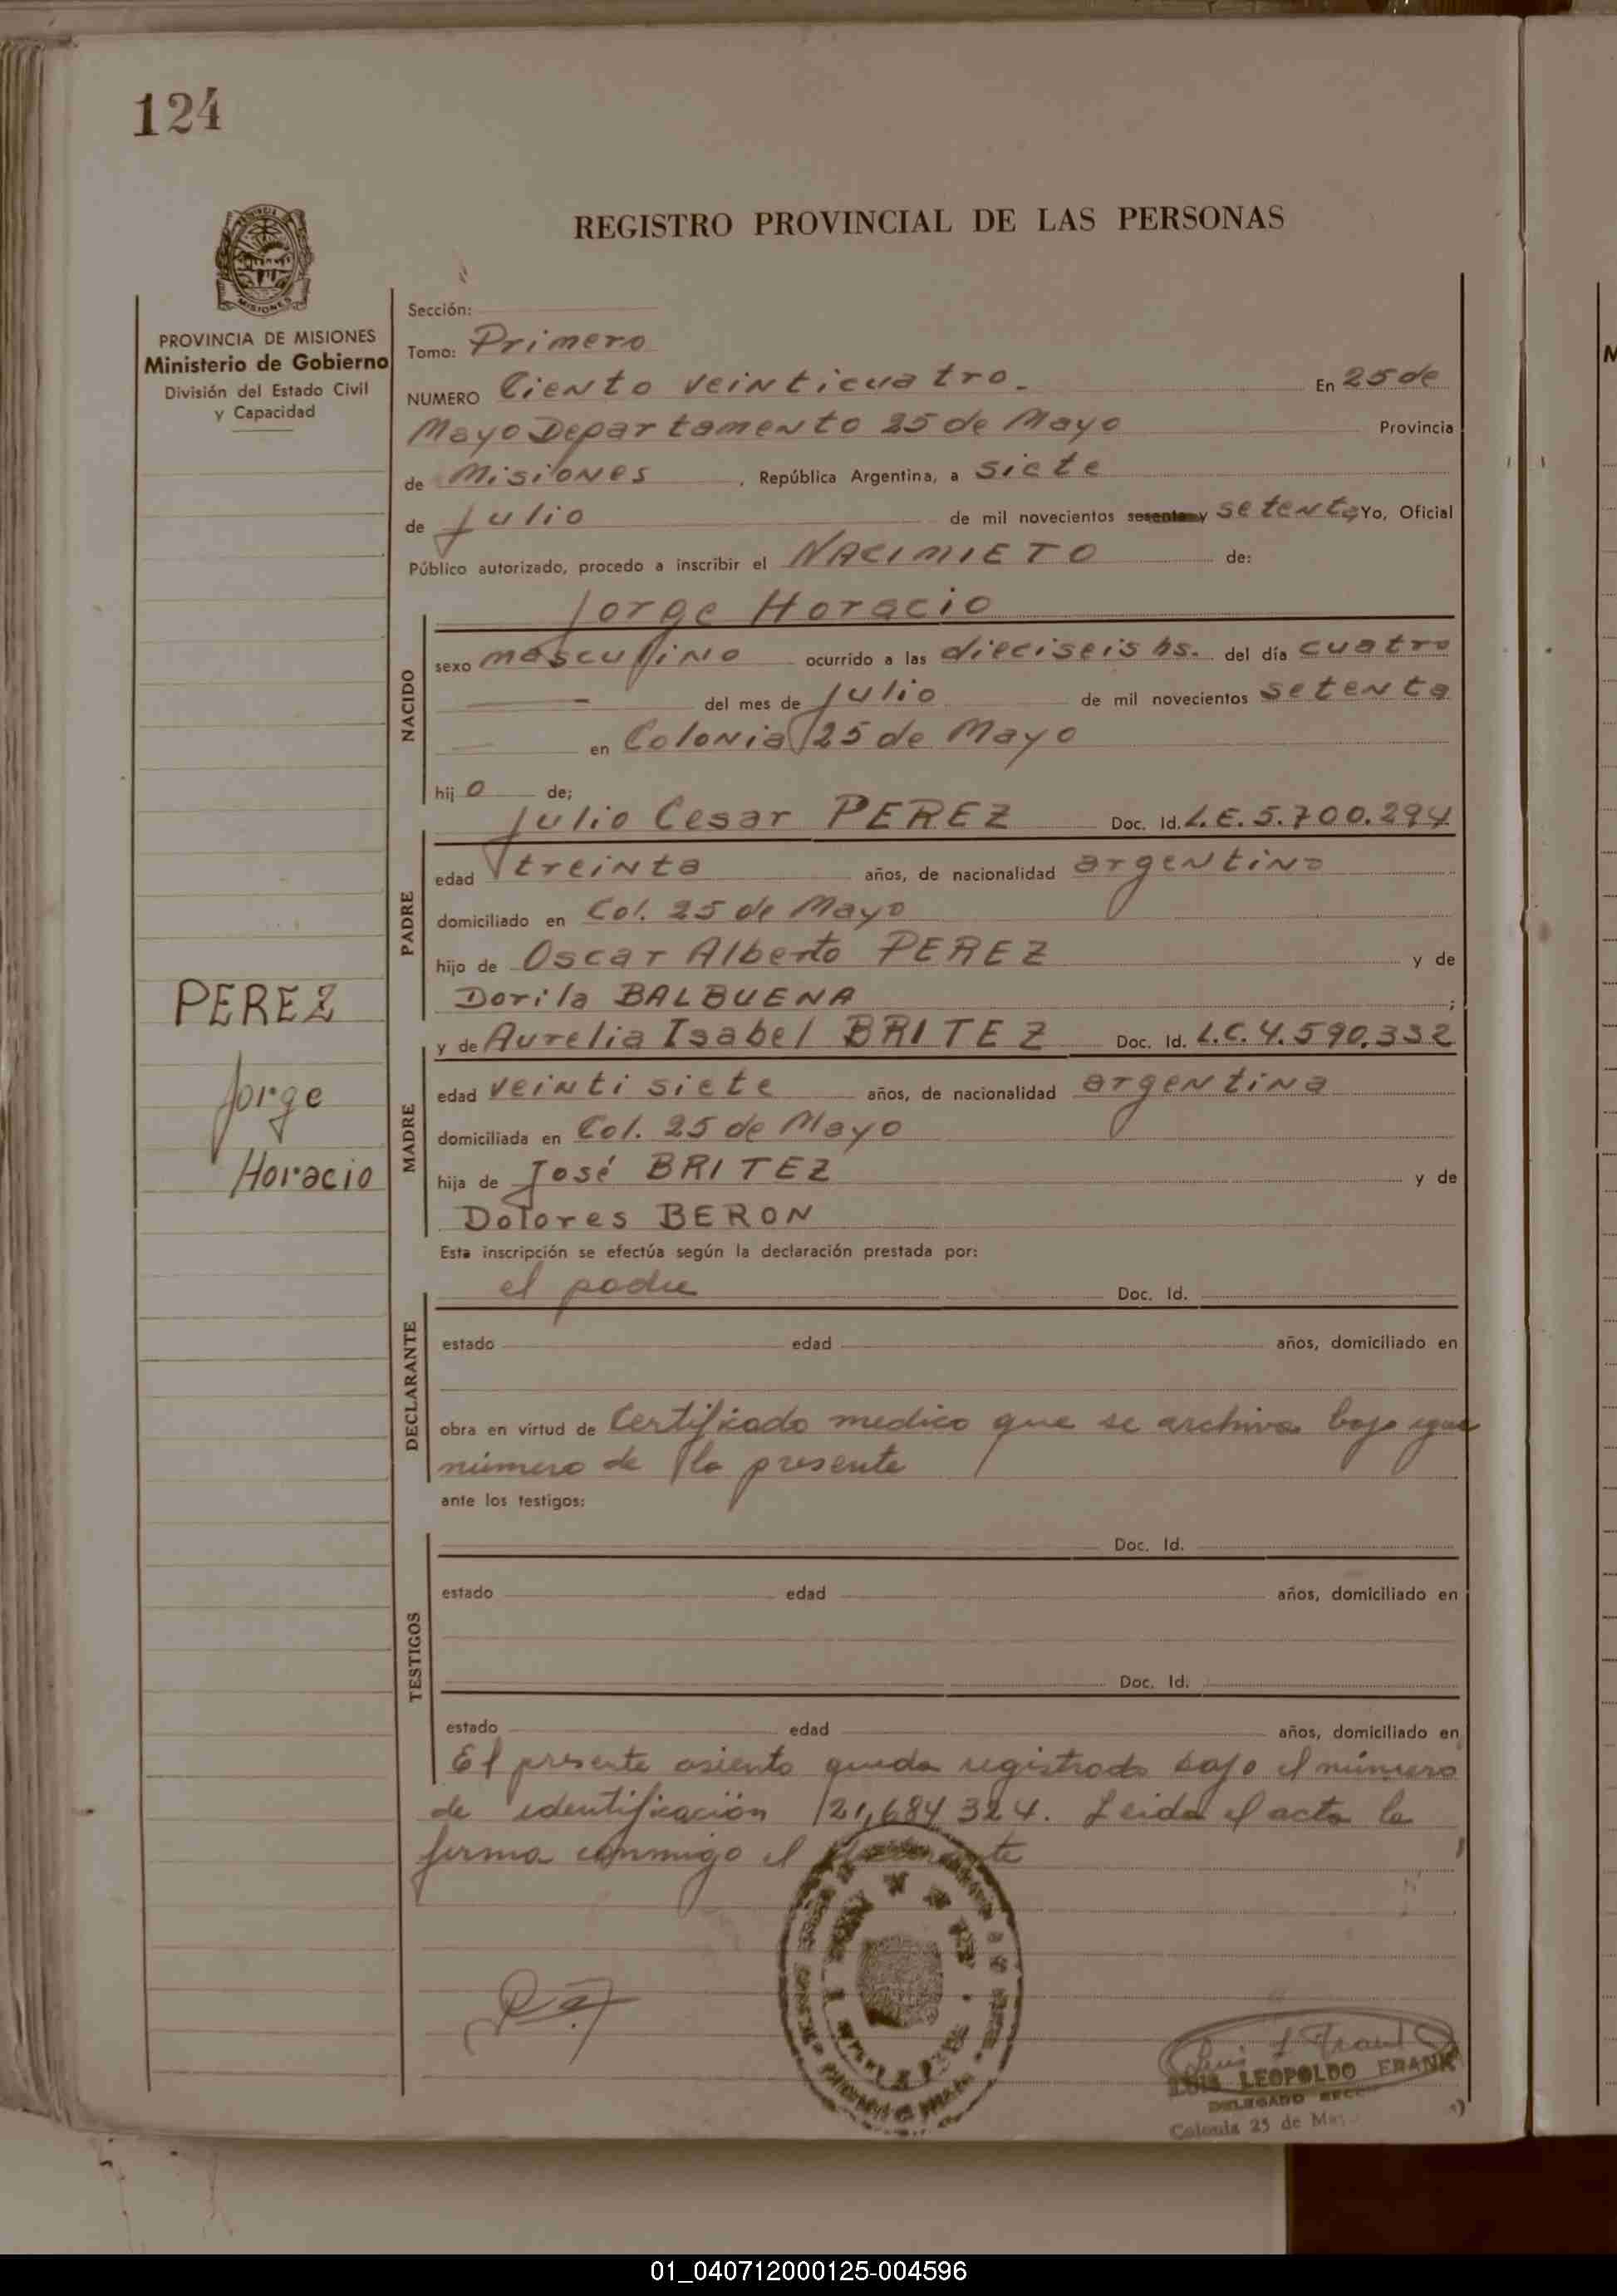 124
REGISTRO PROVINCIAL DE LAS PERSONAS
MISIONES
PROVINCIA DE MISIONES
Ministerio de Gobierno
División del Estado Civil
y Capacidad
Sección:
Tomo: Primero
NUMERO Ciento veinticuatro. En 25 de
Mayo Departamento 25 de Mayo Provincia
de Misiones, República Argentina, a siete
de Julio de mil novecientos sesenta y setenta Yo, Oficial
Público autorizado, procedo a inscribir el NACIMIETO de:
Jorge Horacio
NACIDO
sexo masculino ocurrido a las dieciseis hs. del día cuatro
del mes de Julio de mil novecientos setenta
en Colonia 25 de Mayo
hij o de;
Julio Cesar PEREZ Doc. Id. L.E. 5.700.294
PADRE
edad treinta años, de nacionalidad argentino
domiciliado en Col. 25 de Mayo
hijo de Oscar Alberto PEREZ y de
Dorila BALBUENA ;
y de Aurelia Isabel BRITEZ Doc. Id. L.C. 4.590.332
MADRE
edad veinti siete años, de nacionalidad argentina
domiciliada en Col. 25 de Mayo
hija de José BRITEZ y de
Dolores BERON
PEREZ
Jorge
Horacio
Esta inscripción se efectúa según la declaración prestada por:
el padre Doc. Id.
DECLARANTE
estado edad años, domiciliado en
obra en virtud de Certificado medico que se archiva bajo igual
número de la presente
ante los testigos:
Doc. Id.
TESTIGOS
estado edad años, domiciliado en
Doc. Id.
estado edad años, domiciliado en
El presente asiento queda registrado bajo el número
de identificación 21,684,324. Leida el acta la
firma conmigo el
LUIS LEOPOLDO FRANK
DELEGADO
Colonia 25 de May
01_040712000125-004596